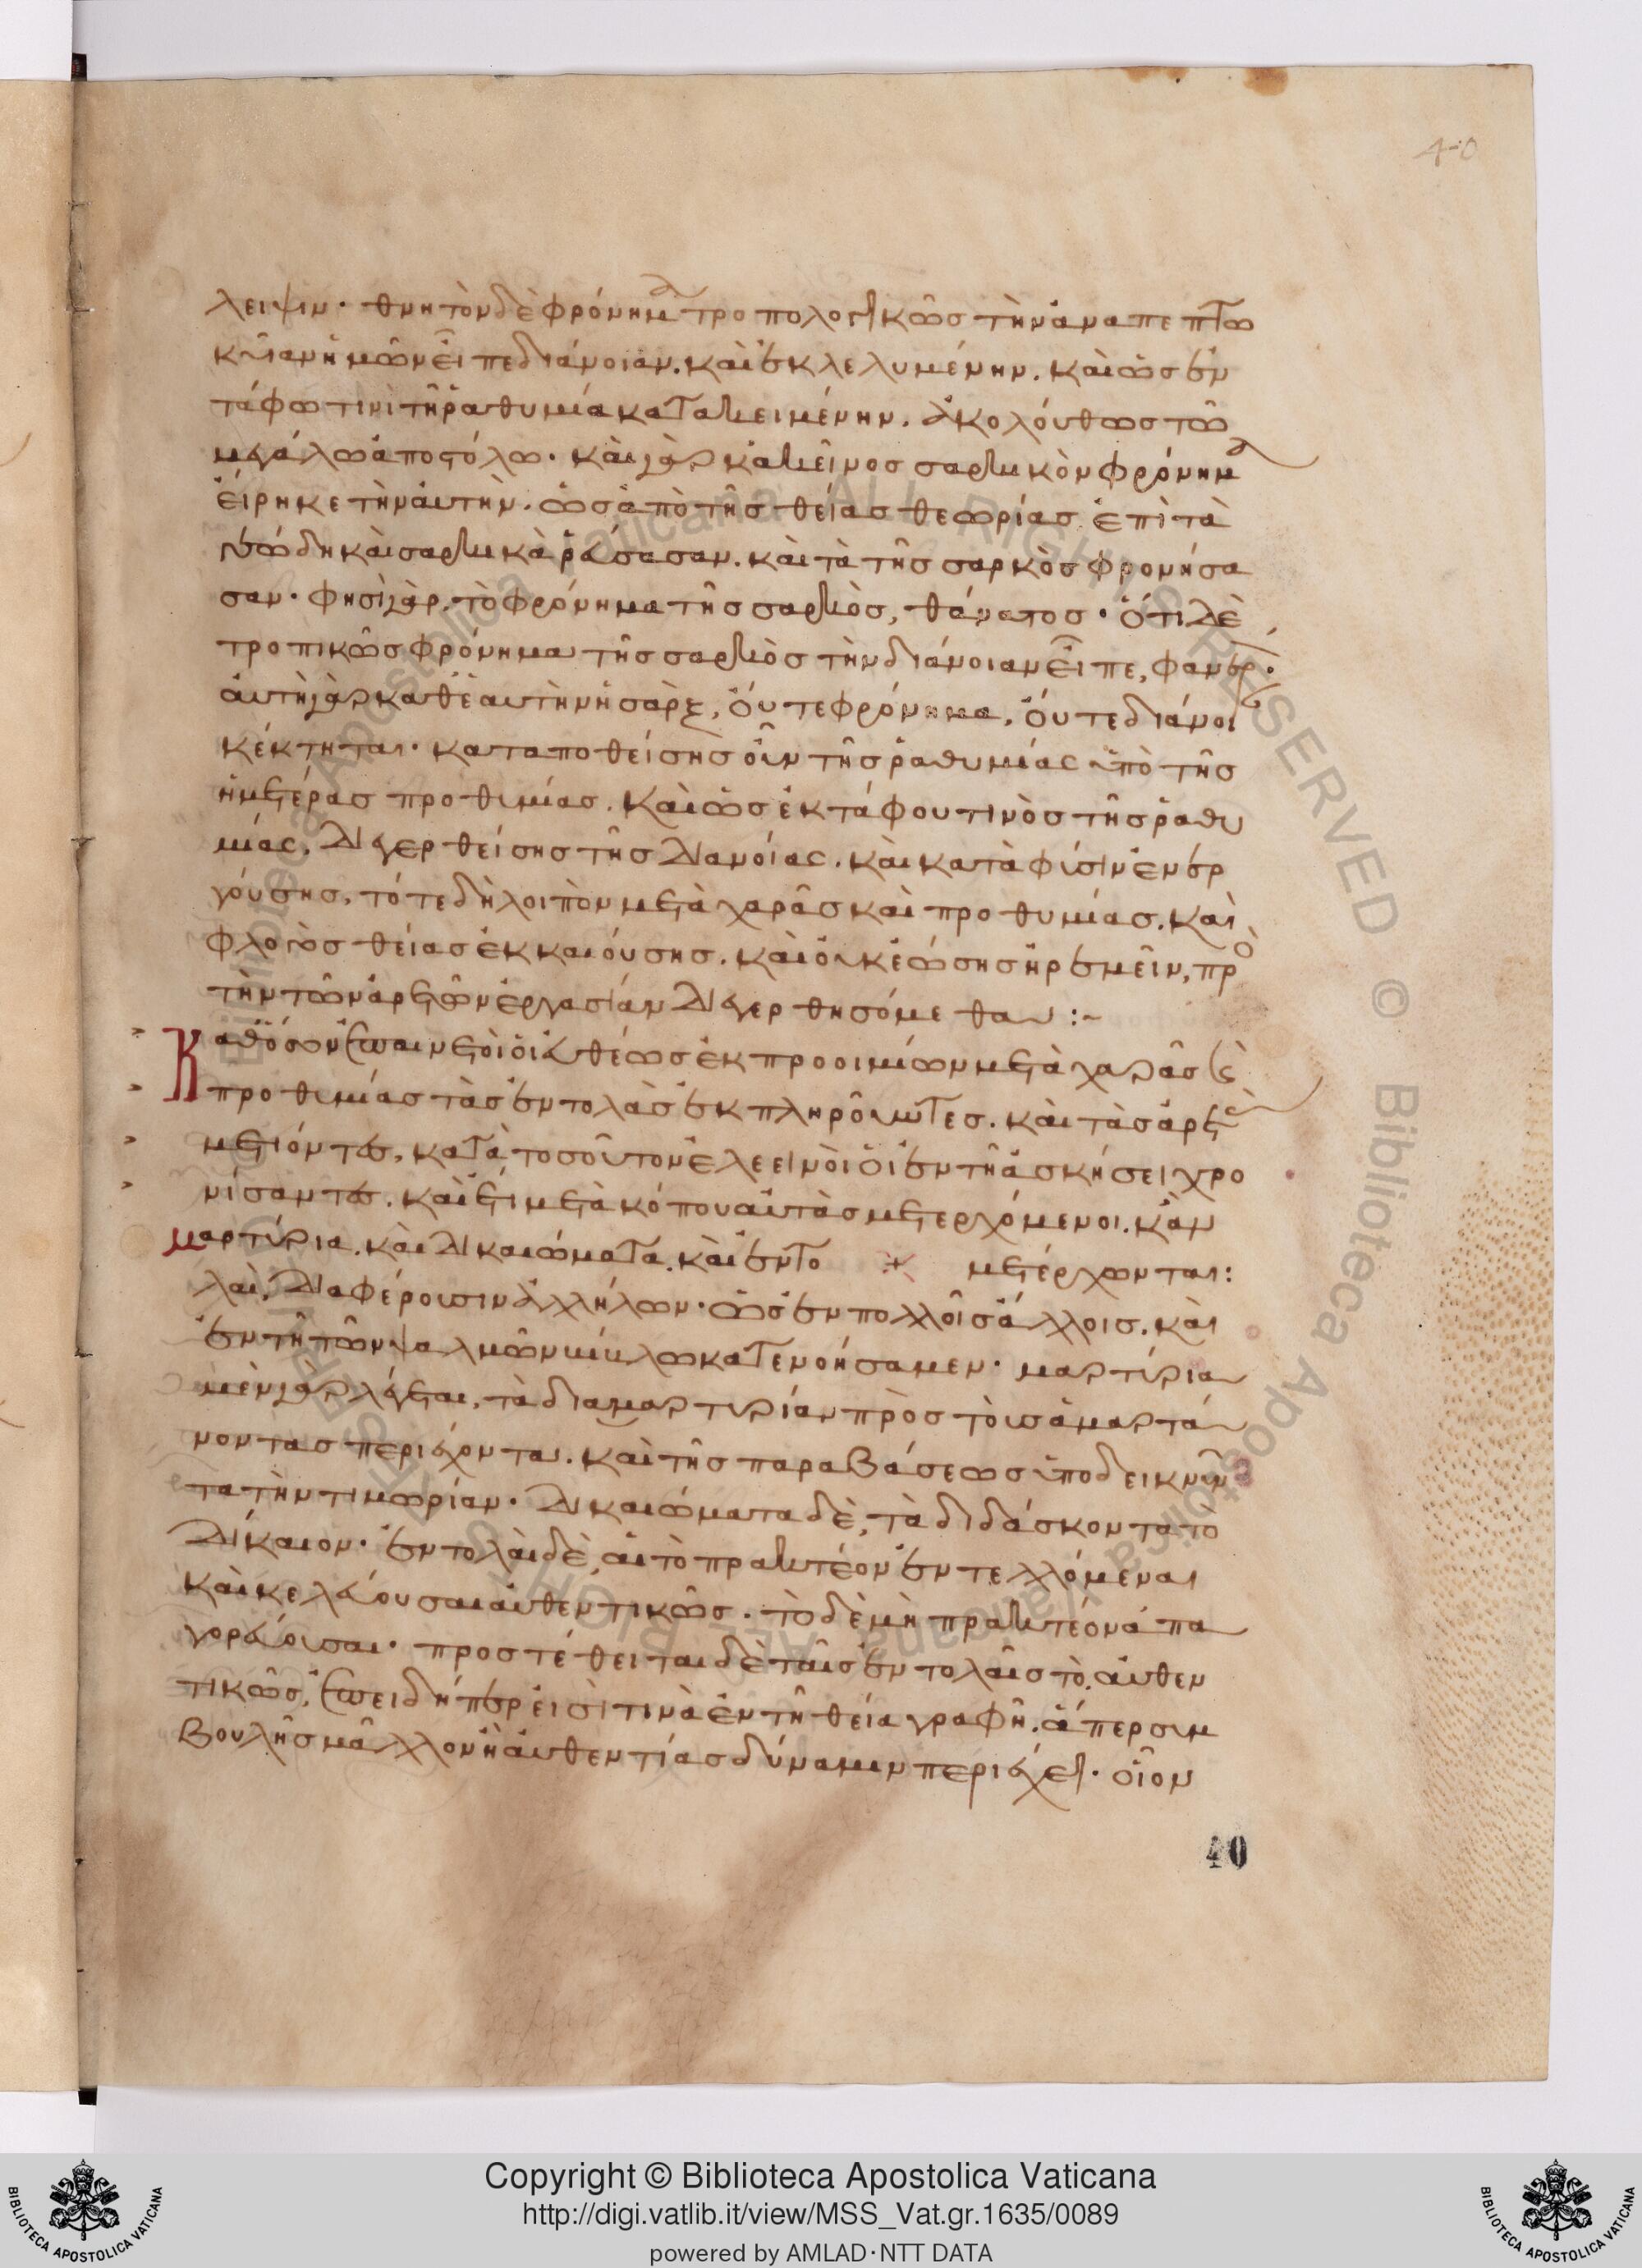 40
λειψιν· θνητὸν δὲ φρόνημα τροπολογικῶς τὴν ἀναπεπτω
κυῖαν ἡμῶν εἶπε διάνοιαν. καὶ ἐκλελυμένην. καὶ ὡς ἐν
τάφω τινὶ τῆ ῥαθυμία κατακειμένην. ἀκολούθως τῶ
μεγάλω ἀποστόλω. καὶ γὰρ κἀκεῖνος σαρκικὸν φρόνημα
εἴρηκε τὴν αὐτὴν. ὡς ἀπὸ τῆς θείας θεωρίας ἐπὶ τὰ
γεώδη καὶ σαρκικὰ ῥεύσασαν. καὶ τὰ τῆς σαρκὸς φρονήσα
σαν· φησὶ γὰρ, τὸ φρόνημα τῆς σαρκὸς, θάνατος· ὅτι δὲ
τροπικῶς φρόνημα τῆς σαρκὸς τὴν διάνοιαν εἶπε, φανερ·
αὐτὴ γὰρ καθ' ἑαυτὴν ἡ σὰρξ, οὔτε φρόνημα, οὔτε διάνοι
κέκτηται· καταποθείσης οὖν τῆς ῥαθυμίας ὑπὸ τῆς
ἡμετέρας προθυμίας. καὶ ὡς ἐκ τάφου τινὸς τῆς ῥαθυ
μίας, διεγερθείσης τῆς διανοίας. καὶ κατὰ φύσιν ἐνερ
γούσης, τότε δὴ λοιπὸν μετὰ χαρᾶς καὶ προθυμίας. καὶ
φλογὸς θείας ἐκκαιούσης. καὶ οὐκ ἐώσης ἠρεμεῖν, πρὸ
τὴν τῶν ἀρετῶν ἐργασίαν διεγερθησόμεθα :~
Καθόσον ἐπαινετοὶ οἱ εὐθέως ἐκ προοιμίων μετὰ χαρᾶς καὶ
προθυμίας τὰς ἐντολὰς ἐκπληροῦντες. καὶ τὰς ἀρετὰς
μετιόντες, κατὰ τοσοῦτον ἐλεεινοὶ οἱ ἐν τῆ ἀσκήσει χρο
νίσαντες. καὶ ἔτι μετὰ κόπου αὐτὰς μετερχόμενοι. κἂν
μετέρχωνται:
μαρτύρια. καὶ δικαιώματα. καὶ ἐντο
λαὶ, διαφέρουσιν ἀλλήλων· ὡς ἐν πολλοῖς ἄλλοις. καὶ
ἐν τῆ τῶν ψαλμῶν κύκλω κατενοήσαμεν· μαρτύρια
μὲν γὰρ λέγεται, τὰ διαμαρτυρίαν πρὸς τοὺς ἁμαρτά
νοντας περιέχοντα. καὶ τῆς παραβάσεως ὑποδεικνῦν
τα τὴν τιμωρίαν· δικαιώματα δὲ, τὰ διδάσκοντα τὸ
δίκαιον· ἐντολαὶ δὲ, αἱ τὸ πρακτέον ἐντελλόμεναι
καὶ κελεύουσαι αὐθεντικῶς· τὸ δὲ μὴ πρακτέον ἀπα
γορεύουσαι· προστέθειται δὲ ταῖς ἐντολαῖς τὸ, αὐθεν
τικῶς, ἐπειδήπερ εἰσὶ τινὰ ἐν τῆ θεία γραφῆ, ἅπερ συμ
βουλῆς μᾶλλον ἢ αὐθεντίας δύναμιν περιέχει· οἷον
40
Copyright © Biblioteca Apostolica Vaticana
http://digi.vatlib.it/view/MSS_Vat.gr.1635/0089
powered by AMLAD·NTT DATA